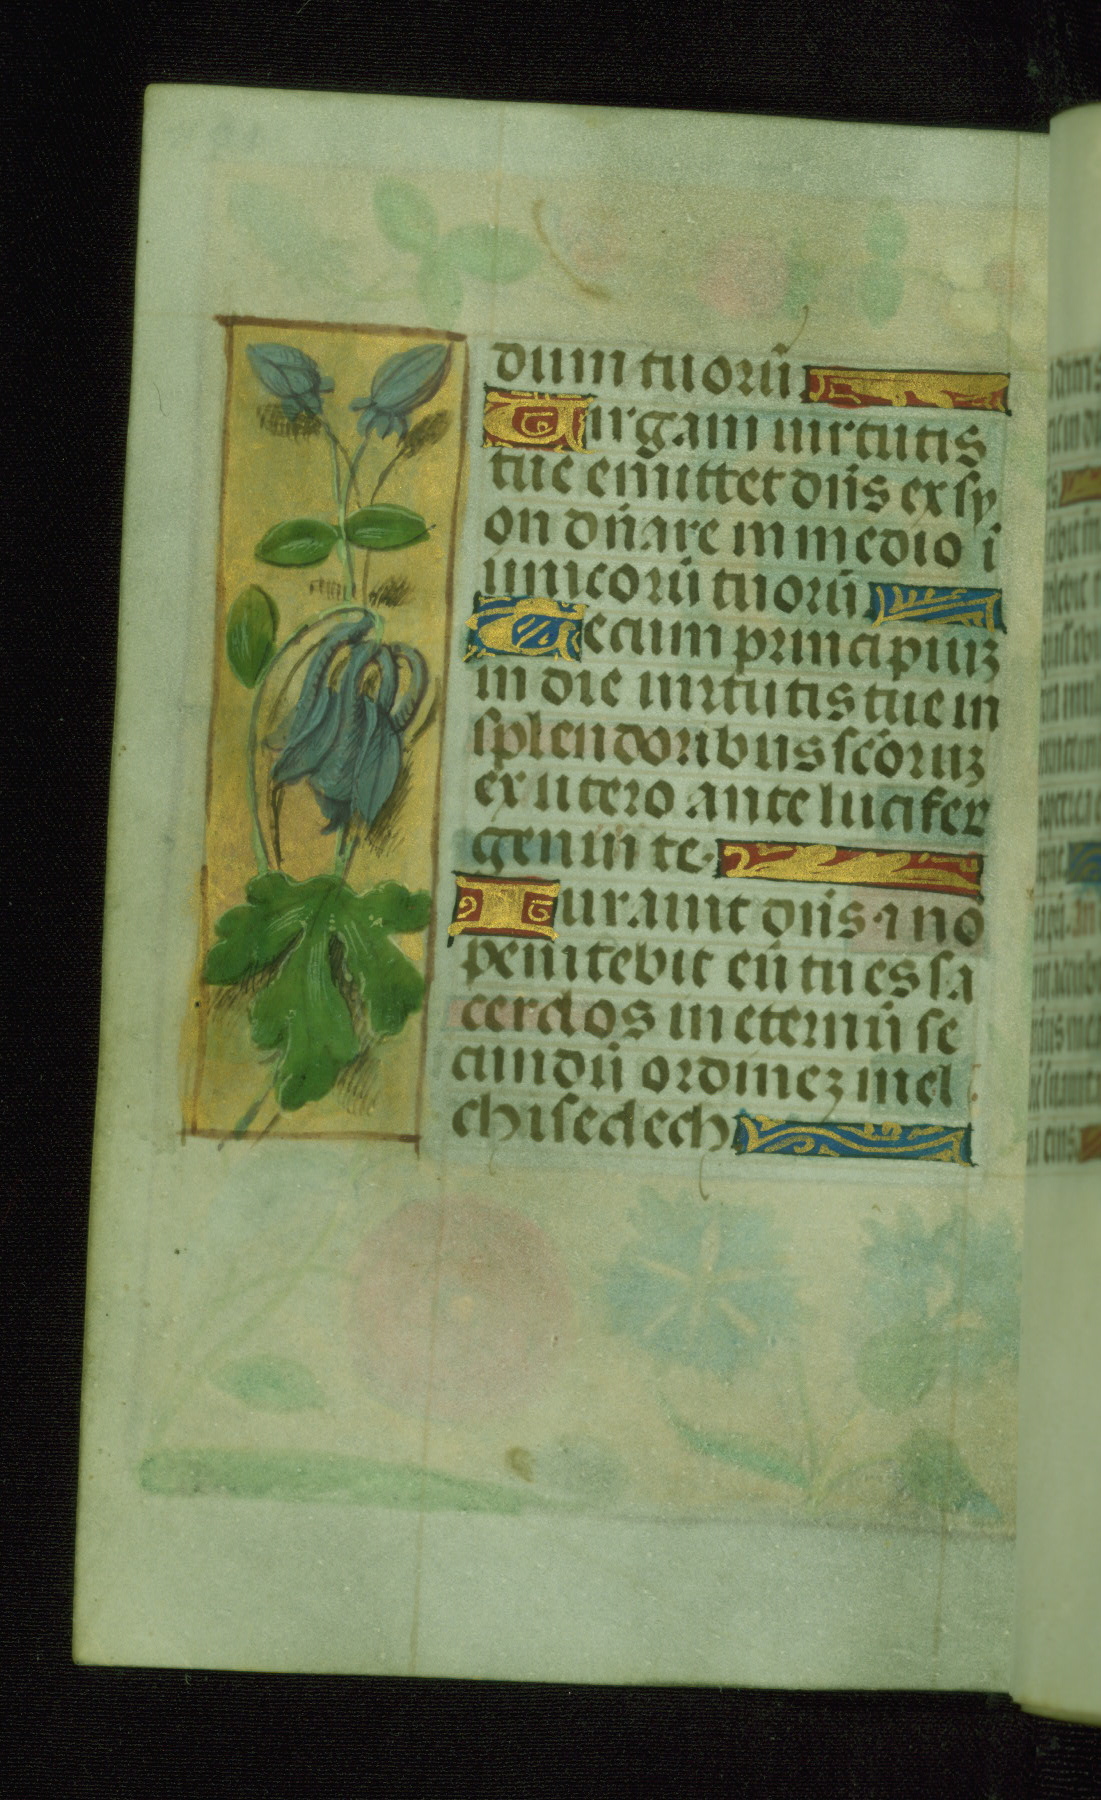 dum tuorū
Uirgam uirtutis
tue emittet dn̄s ex sy
on dn̄are in medio i
nimicorū tuorū
Tecum principiuꝫ
in die uirtutis tue in
splendoribus scōruꝫ
ex utero ante lucifer
genui te·
Iurauit dn̄s ⁊ no
penitebit eū tu es sa
cerdos in eternū se
cundū ordineꝫ mel
chisedech